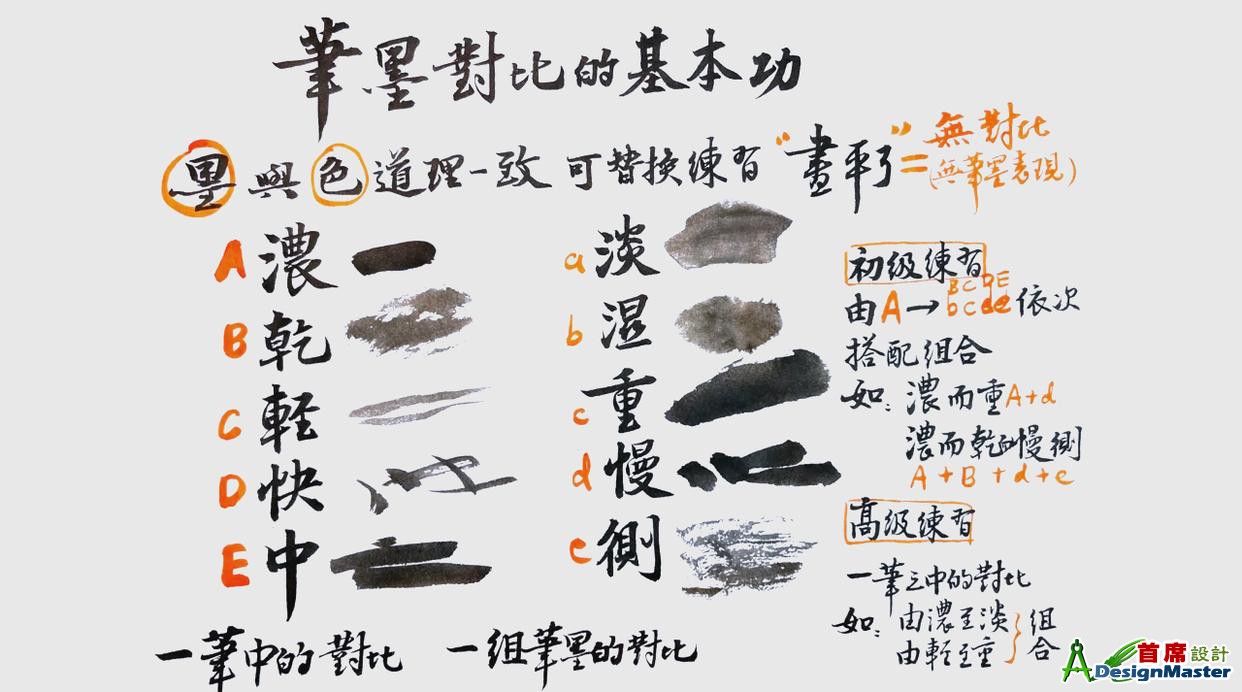 筆墨對比的基本功
墨與色道理一致 可替換練習 "畫平了" = 無對比
(無筆墨表現)
A 濃
a 淡
B 乾
b 湿
C 輕
c 重
D 快
d 慢
E 中
e 側
初級練習
由A→
B C D E
b c d e
依次
搭配组合
如: 濃而重 A+d
濃而乾而慢側
A + B + d + e
高級練習
一筆之中的對比
如: 由濃至淡
由輕至重
组合
一筆中的對比 一组筆墨的對比
首席設計
DesignMaster